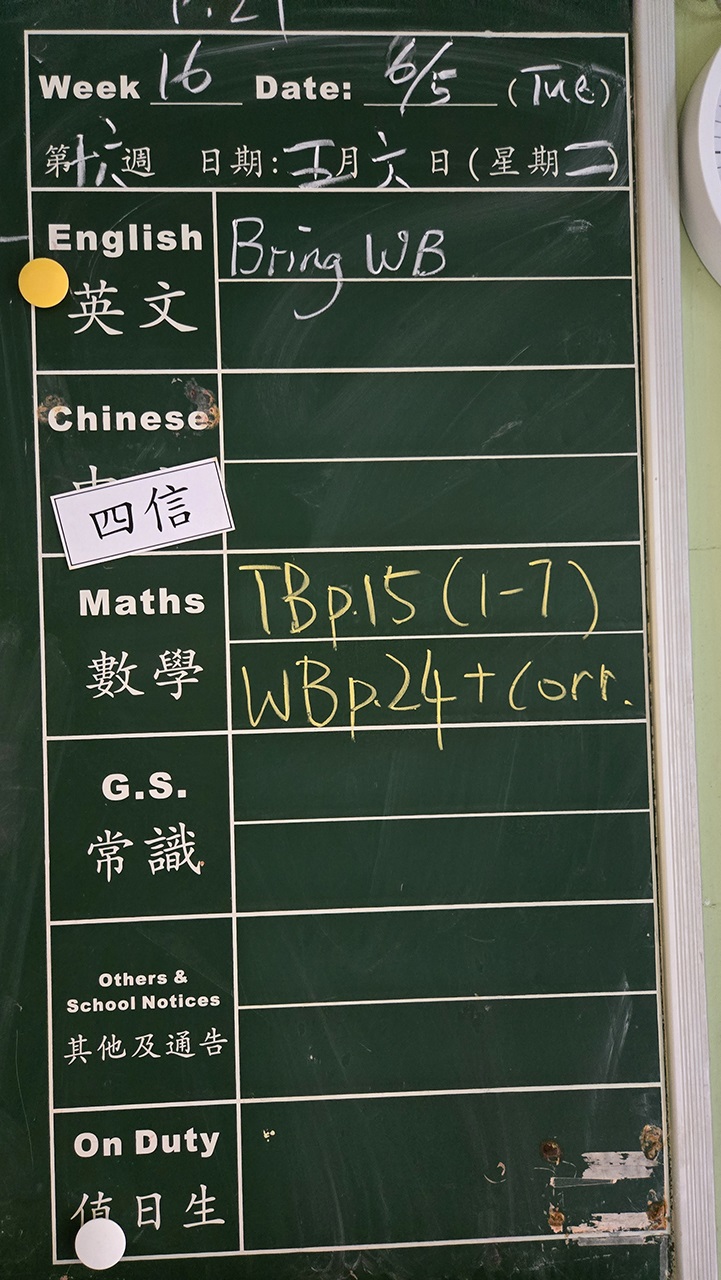 Week 16 Date: 6/5 (Tue)
第十六週 日期:五月六日(星期二)
English Bring WB
英文
Chinese
四信
Maths TBp.15 (1-7)
數學 WBp.24 + Corr.
G.S.
常識
Others &
School Notices
其他及通告
On Duty
值日生